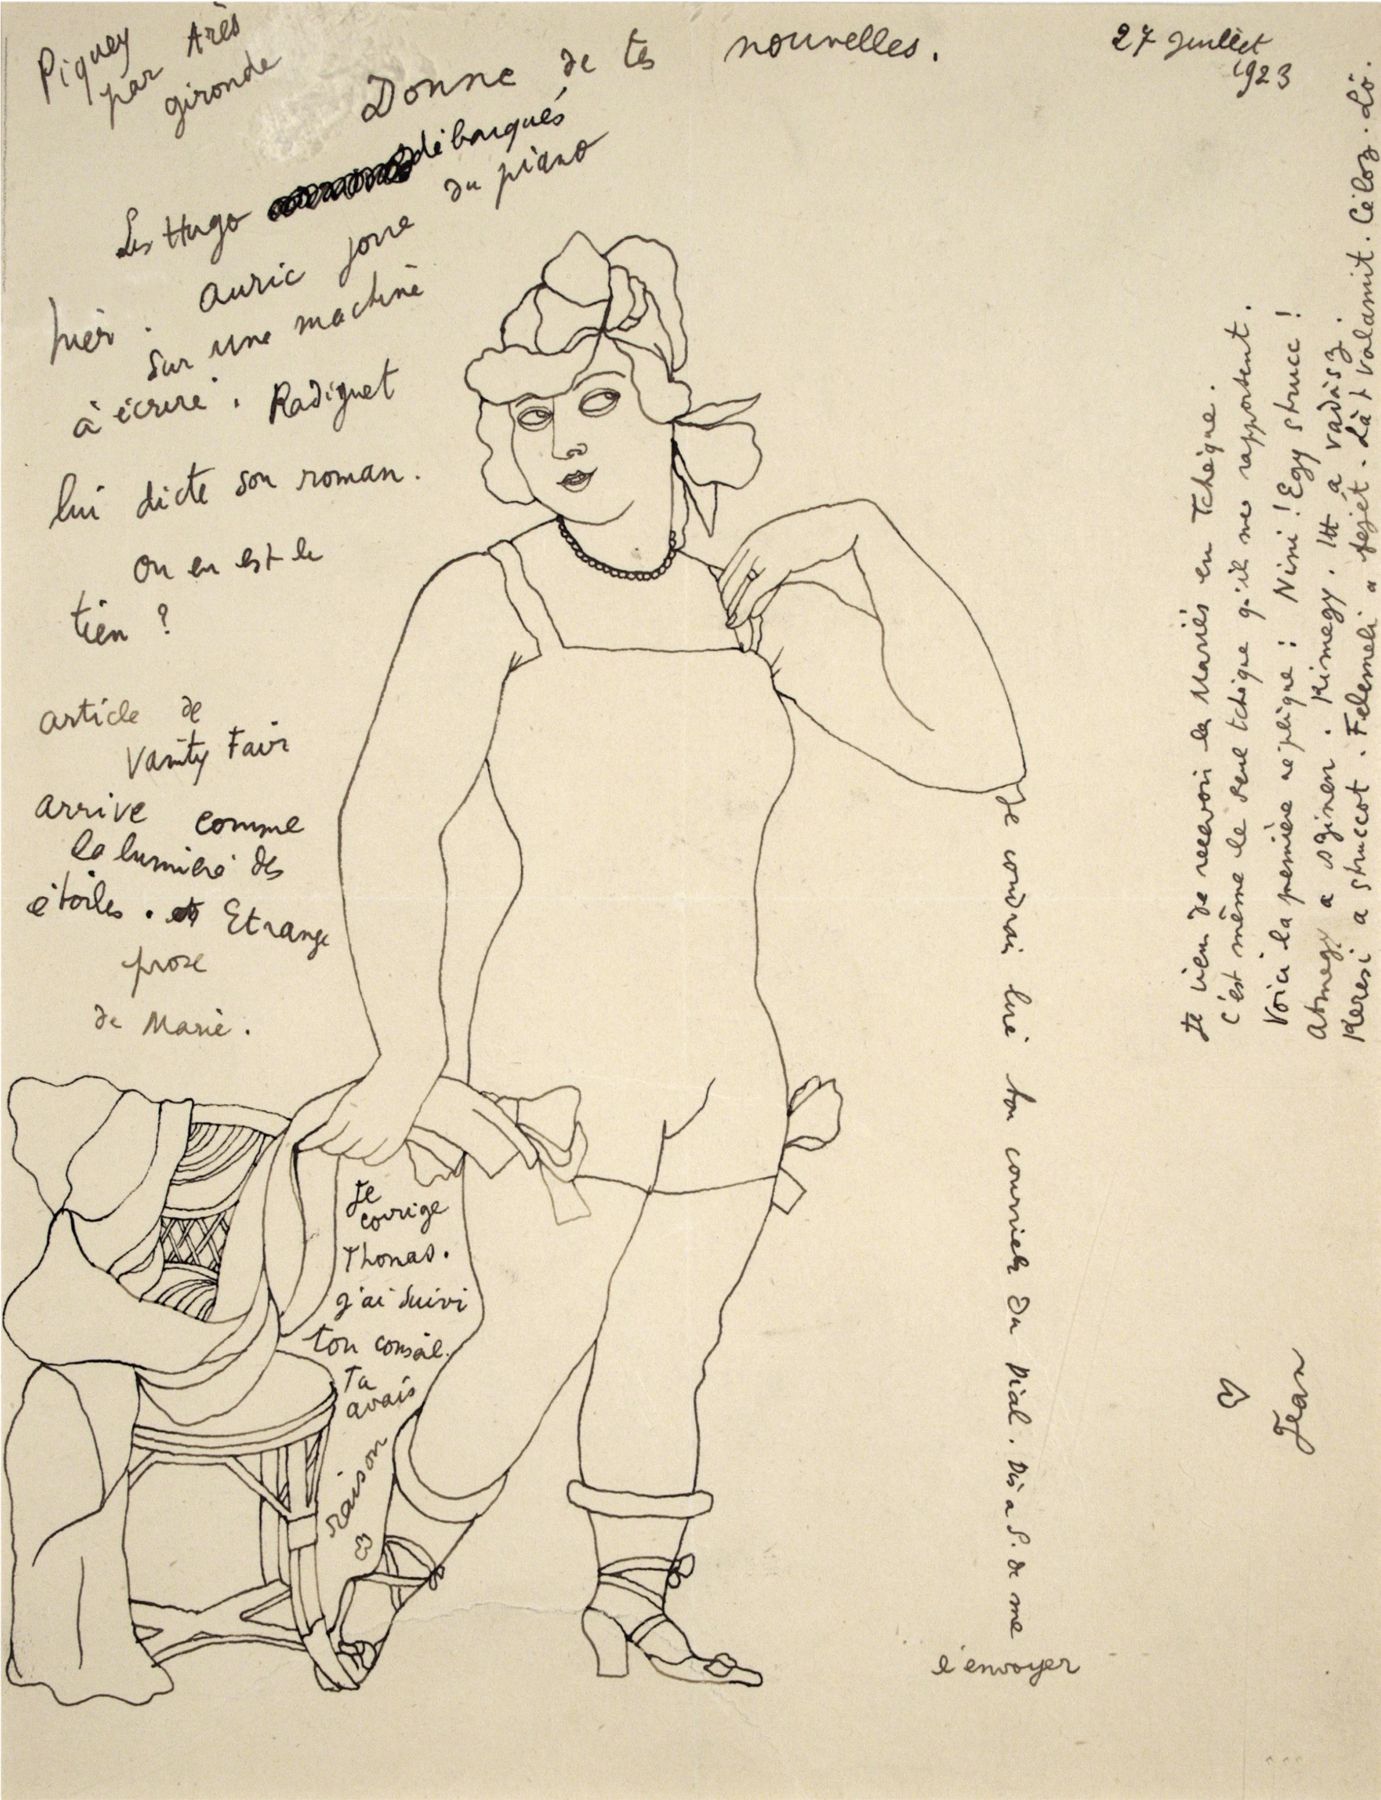 Piquey
par Arès
gironde
27 juillet
1923
Donne de tes nouvelles.
Les Hugo débarqués
hier. Auric joue du piano
sur une machine
à écrire. Radiguet
lui dicte son roman.
Ou en est le
tien ?
article de
Vanity Fair
arrive comme
la lumière des
étoiles. Etrange
prose
de Marie.
Je
corrige
Thomas.
j'ai suivi
ton conseil.
Tu
avais
raison
Je voudrai lire ton courrier du Pial. Dis a P. de me
l'envoyer
Je viens de recevoir les Mariés en Tchèque.
C'est même le seul tchèque qu'il me rapportent.
Voici la première réplique : Nini ! Egy strucc !
Atmegy a szinen. Kimegy. Itt a vadász.
Keresi a struccot. Felemeli a fejét. Lát valamit. Céloz. Lö.
Jean